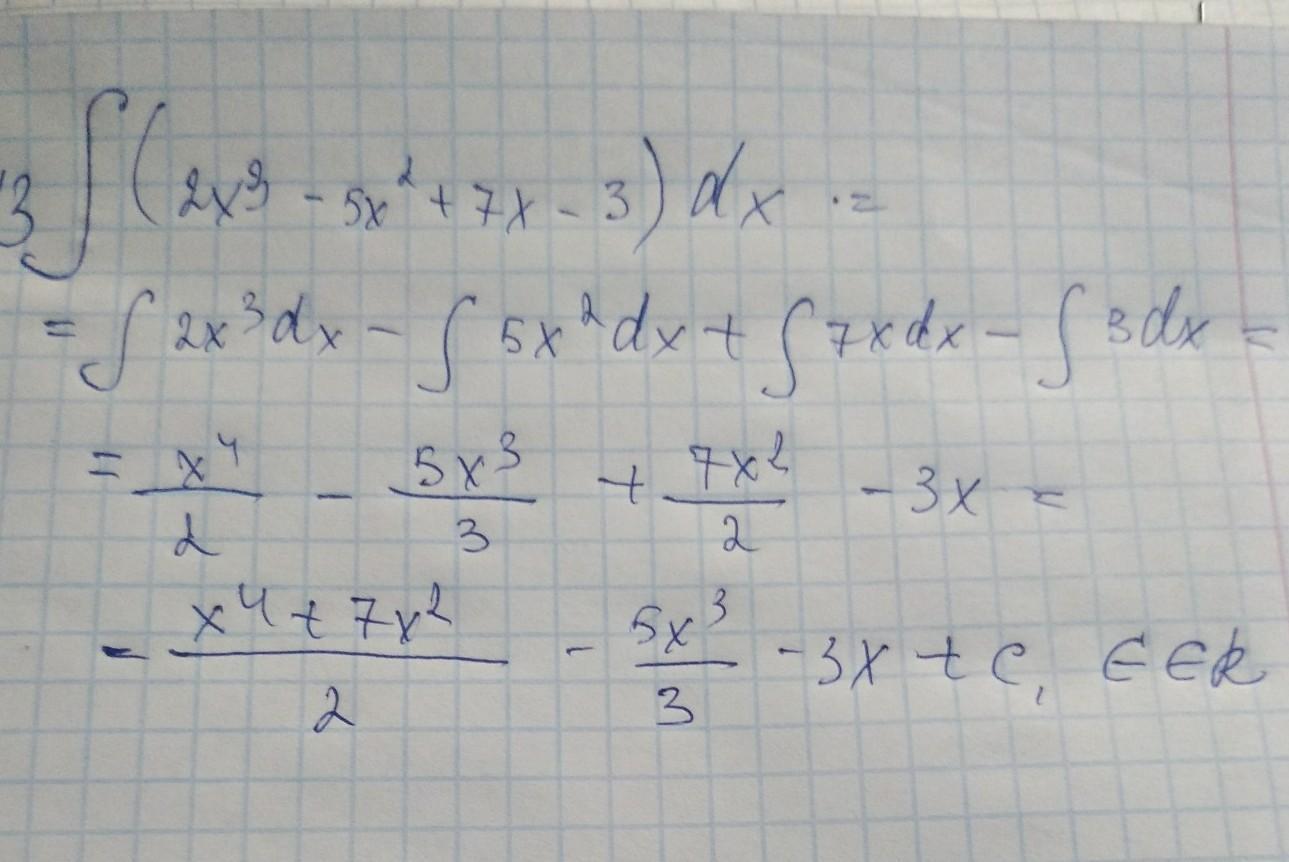 13 ∫(2x³ - 5x² + 7x - 3) dx =
= ∫ 2x³dx - ∫ 5x²dx + ∫ 7xdx - ∫ 3dx =
= x⁴/2 - 5x³/3 + 7x²/2 - 3x =
= (x⁴ + 7x²)/2 - 5x³/3 - 3x + c, ∈ ∈ R